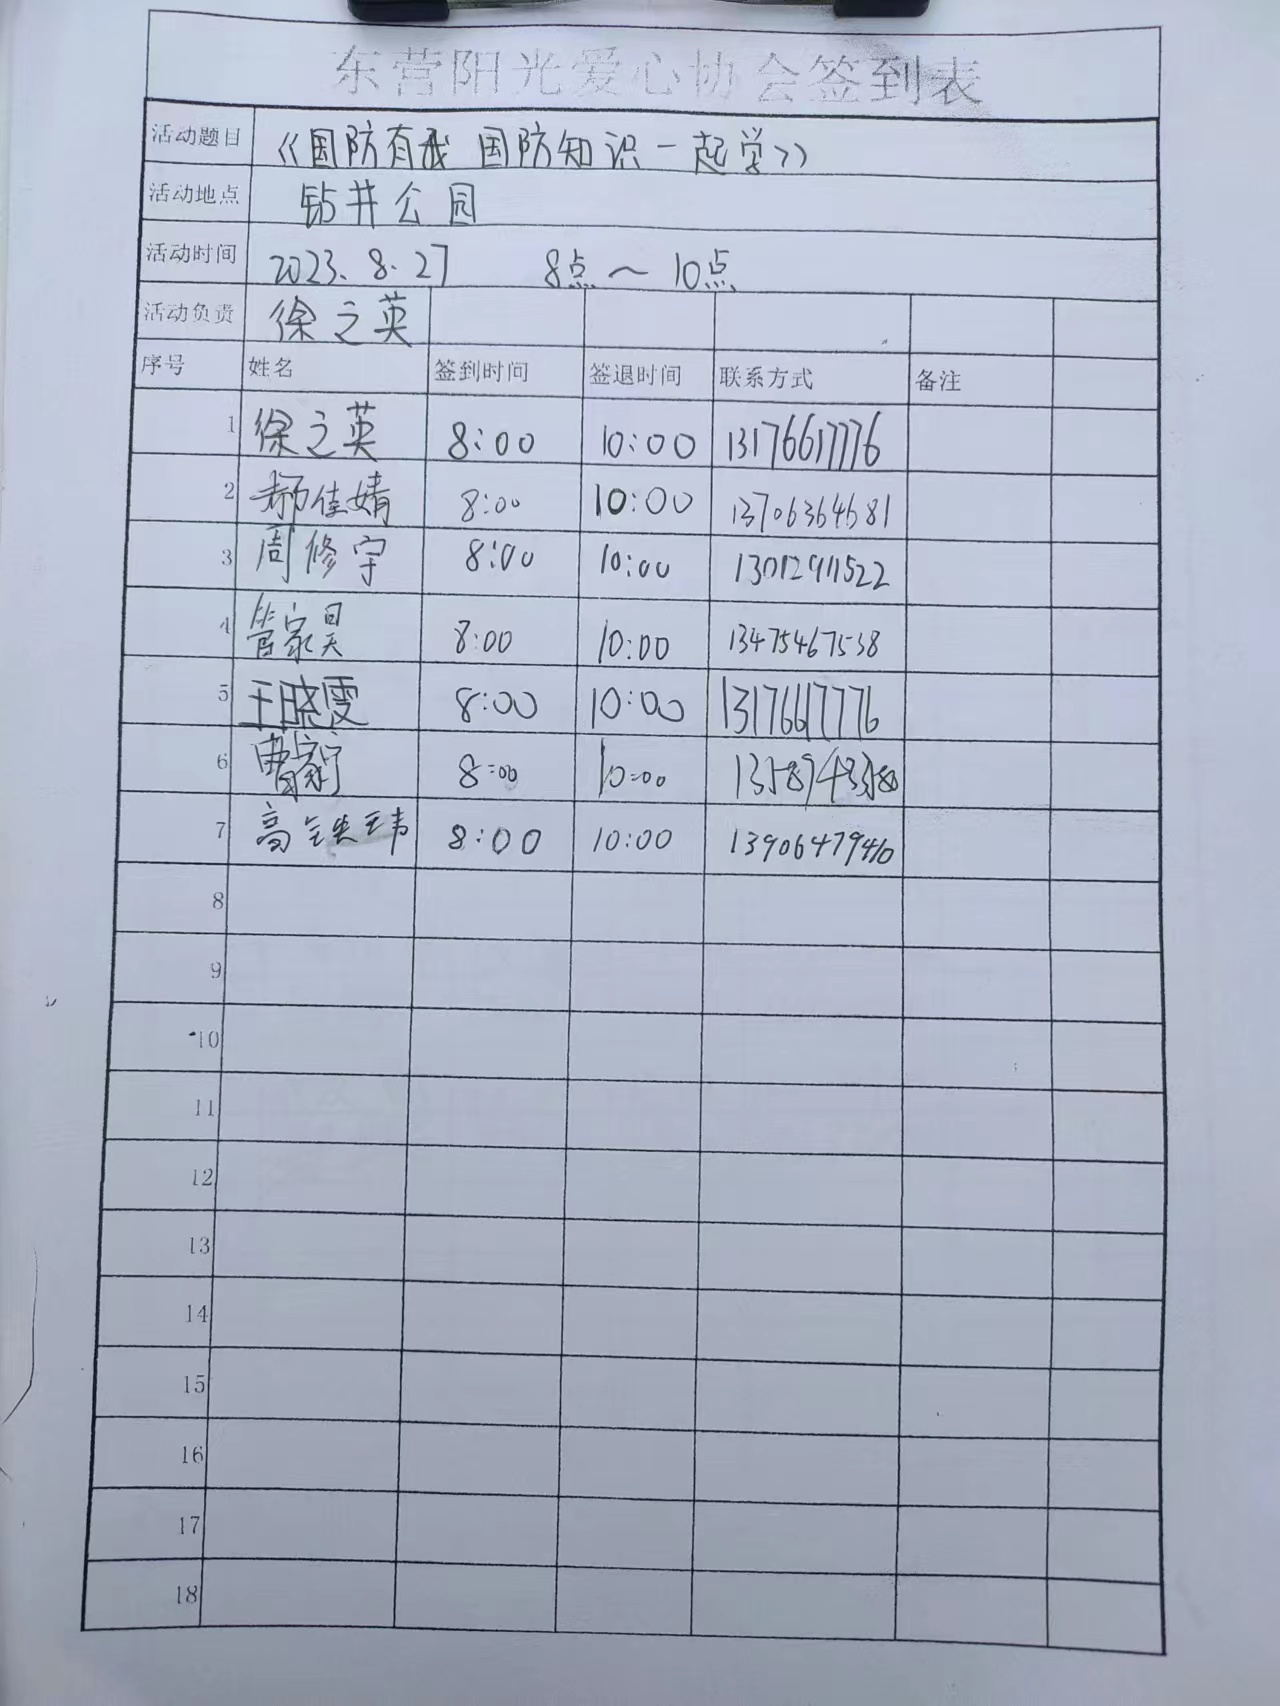 东营阳光爱心协会签到表
活动题目 《国防有我 国防知识一起学》
活动地点 钻井公园
活动时间 2023.8.27 8点~10点
活动负责 徐之英
序号 姓名 签到时间 签退时间 联系方式 备注
1 徐之英 8:00 10:00 13176617776
2 郝佳婧 8:00 10:00 13706364681
3 周修宇 8:00 10:00 13012911522
4 管家昊 8:00 10:00 13475467538
5 王晓雯 8:00 10:00 13176617776
6 8:00 10:00
7 高 8:00 10:00 13906479410
8
9
10
11
12
13
14
15
16
17
18